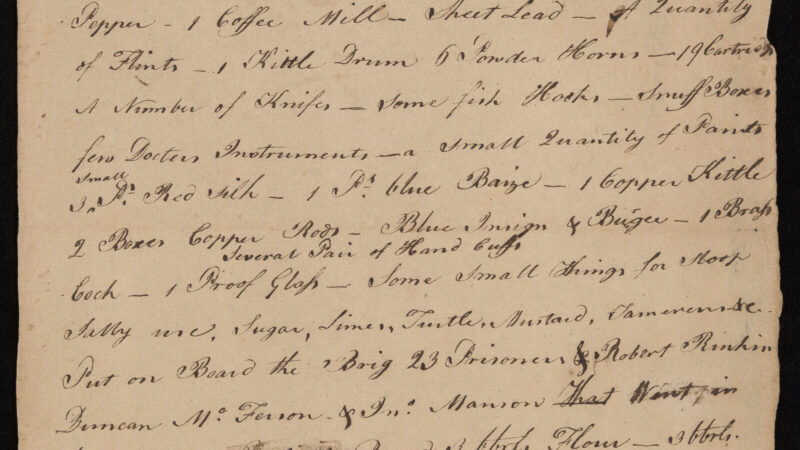 Pepper — 1 Coffee Mill — Sheet Lead — A Quantity
of Flints — 1 Kittle Drum 6 Powder Horns — 19 Cartridg
A Number of Knifes — Some fish Hooks — Snuff Boxes
few Docters Instruments — a Small Quantity of Paints
small
3 Ps. Red Silk — 1 Ps. blue Baize — 1 Copper Kittle
2 Boxes Copper Rods — Blue Insign & Bugee — 1 Brass
Several Pair of Hand Cuffs
Cock — 1 Proof Glass — Some Small things for Sloop
Sally use, Sugar, Limes, Turtle, Mustard, Tamerens &c.
Put on Board the Brig 23 Prisoners & Robert Rinkin
Duncan Mc. Ferson & Jno. Manson That Went in
3 bbrls. Flour — 3 bbrls.